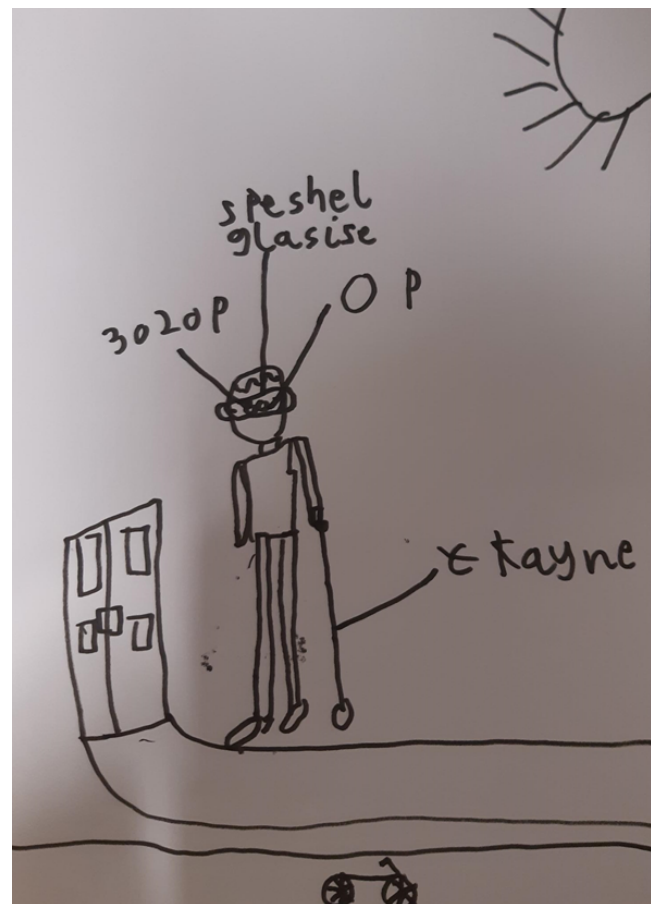 speshel
glasise
3020P
O P
kayne